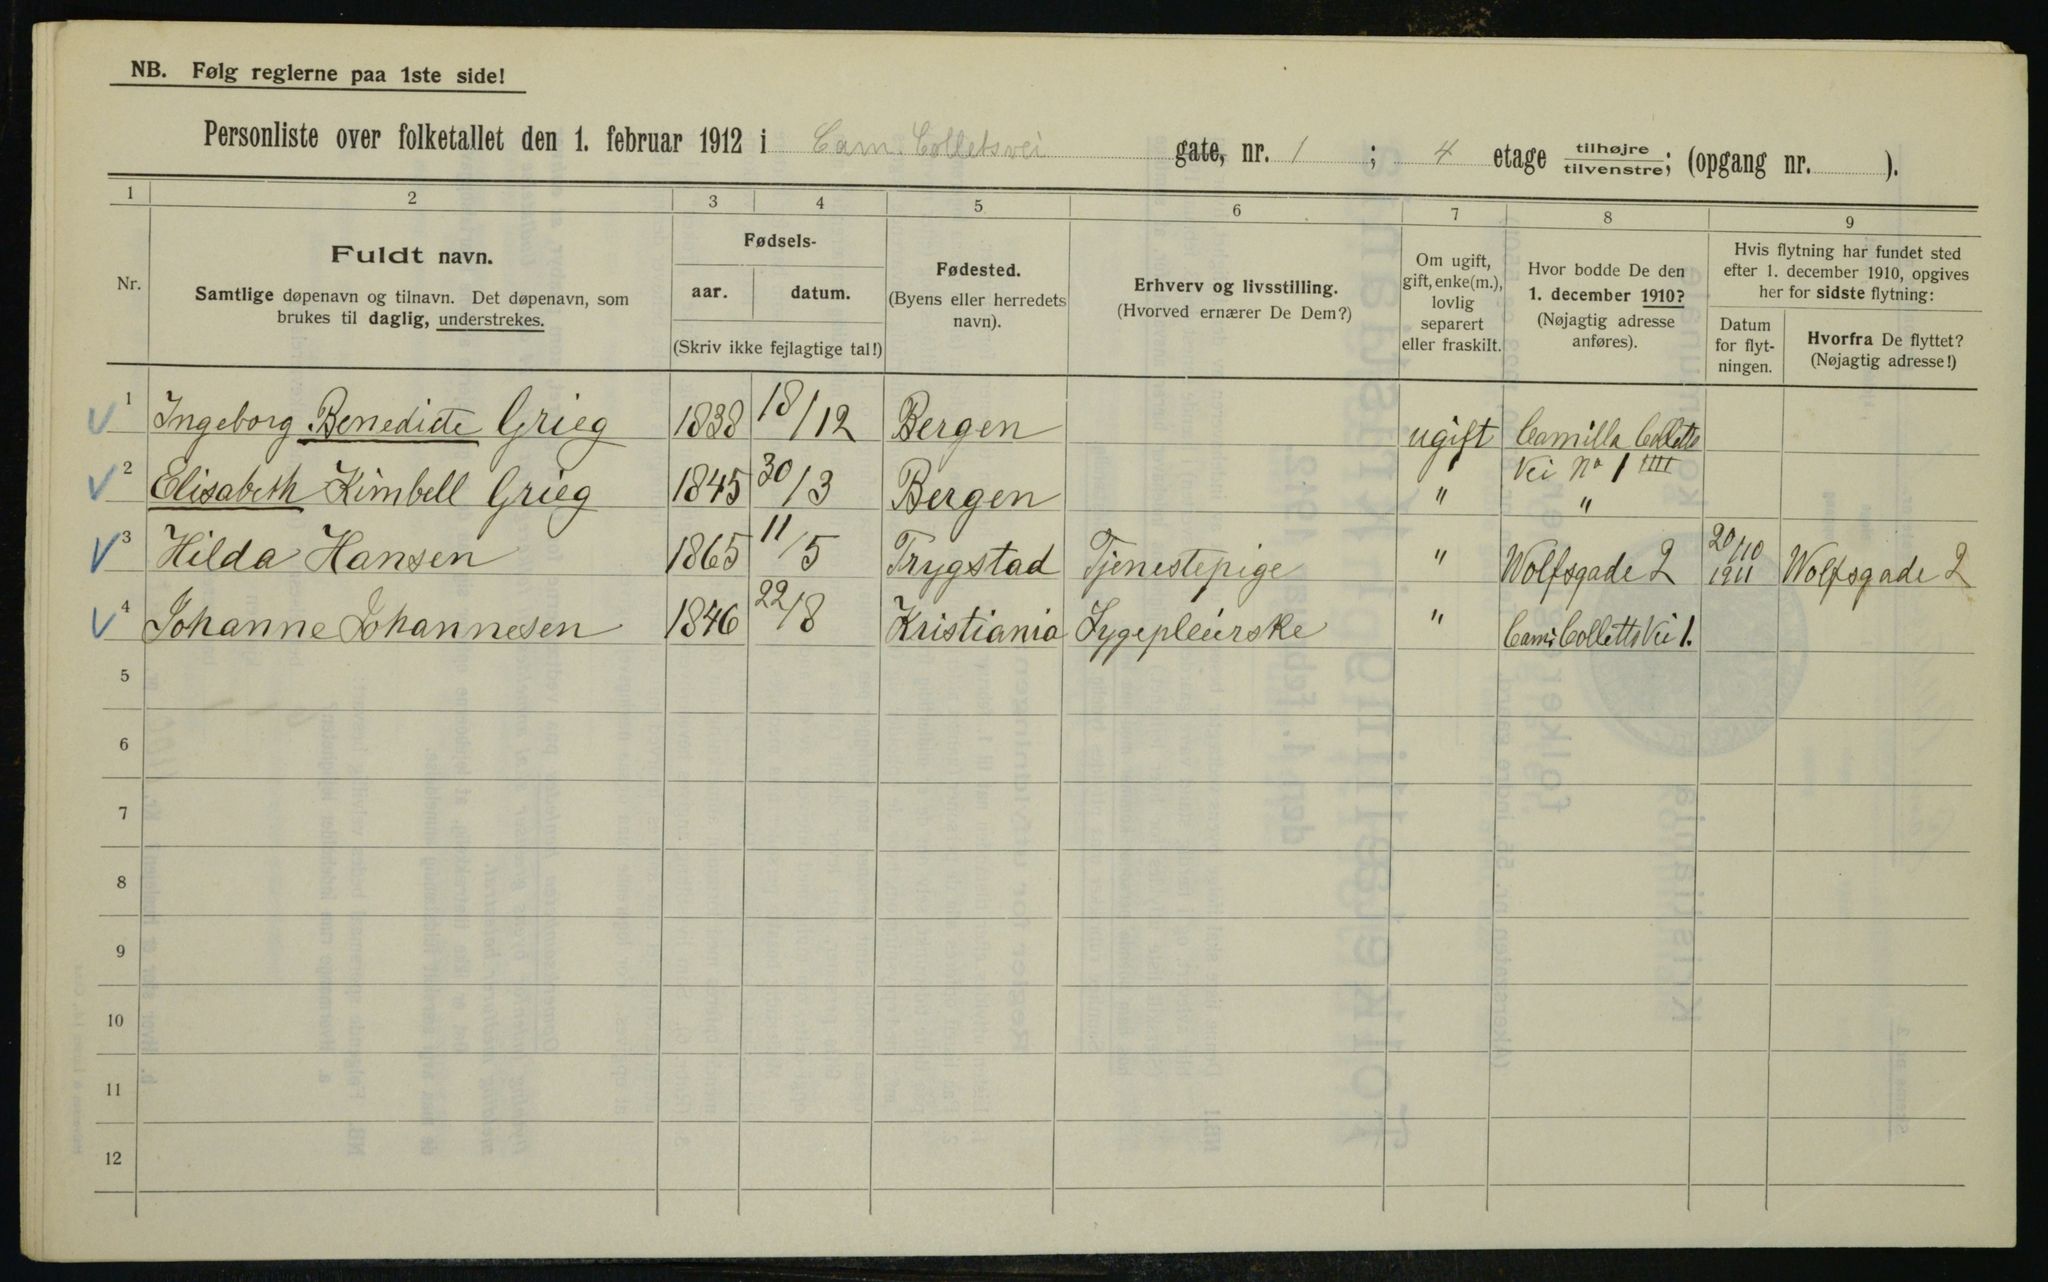 NB. Følg reglerne paa 1ste side!
Personliste over folketallet den 1. februar 1912 i Cam. Colletsvei gate, nr. 1 ; 4 etage tilhøjre/tilvenstre; (opgang nr. ).
1 2 3 4 5 6 7 8 9
Nr.
Fuldt navn.
Samtlige døpenavn og tilnavn. Det døpenavn, som
brukes til daglig, understrekes.
Fødsels-
aar. datum.
(Skriv ikke fejlagtige tal!)
Fødested.
(Byens eller herredets
navn).
Erhverv og livsstilling.
(Hvorved ernærer De Dem?)
Om ugift,
gift, enke(m.),
lovlig
separert
eller fraskilt.
Hvor bodde De den
1. december 1910?
(Nøjagtig adresse
anføres).
Hvis flytning har fundet sted
efter 1. december 1910, opgives
her for sidste flytning:
Datum
for flyt-
ningen.
Hvorfra De flyttet?
(Nøjagtig adresse!)
1 Ingeborg Benedicte Grieg 1838 18/12 Bergen ugift Camilla Colletts
Vei No 1 IIII
2 Elisabeth Kimbell Grieg 1845 30/3 Bergen " "
3 Hilda Hansen 1865 11/5 Trygstad Tjenestepige " Wolfsgade 2 20/10 1911 Wolfsgade 2
4 Johanne Johannesen 1846 22/8 Kristiania Sygepleierske " Cam. Colletts Vei 1.
5
6
7
8
9
10
11
12